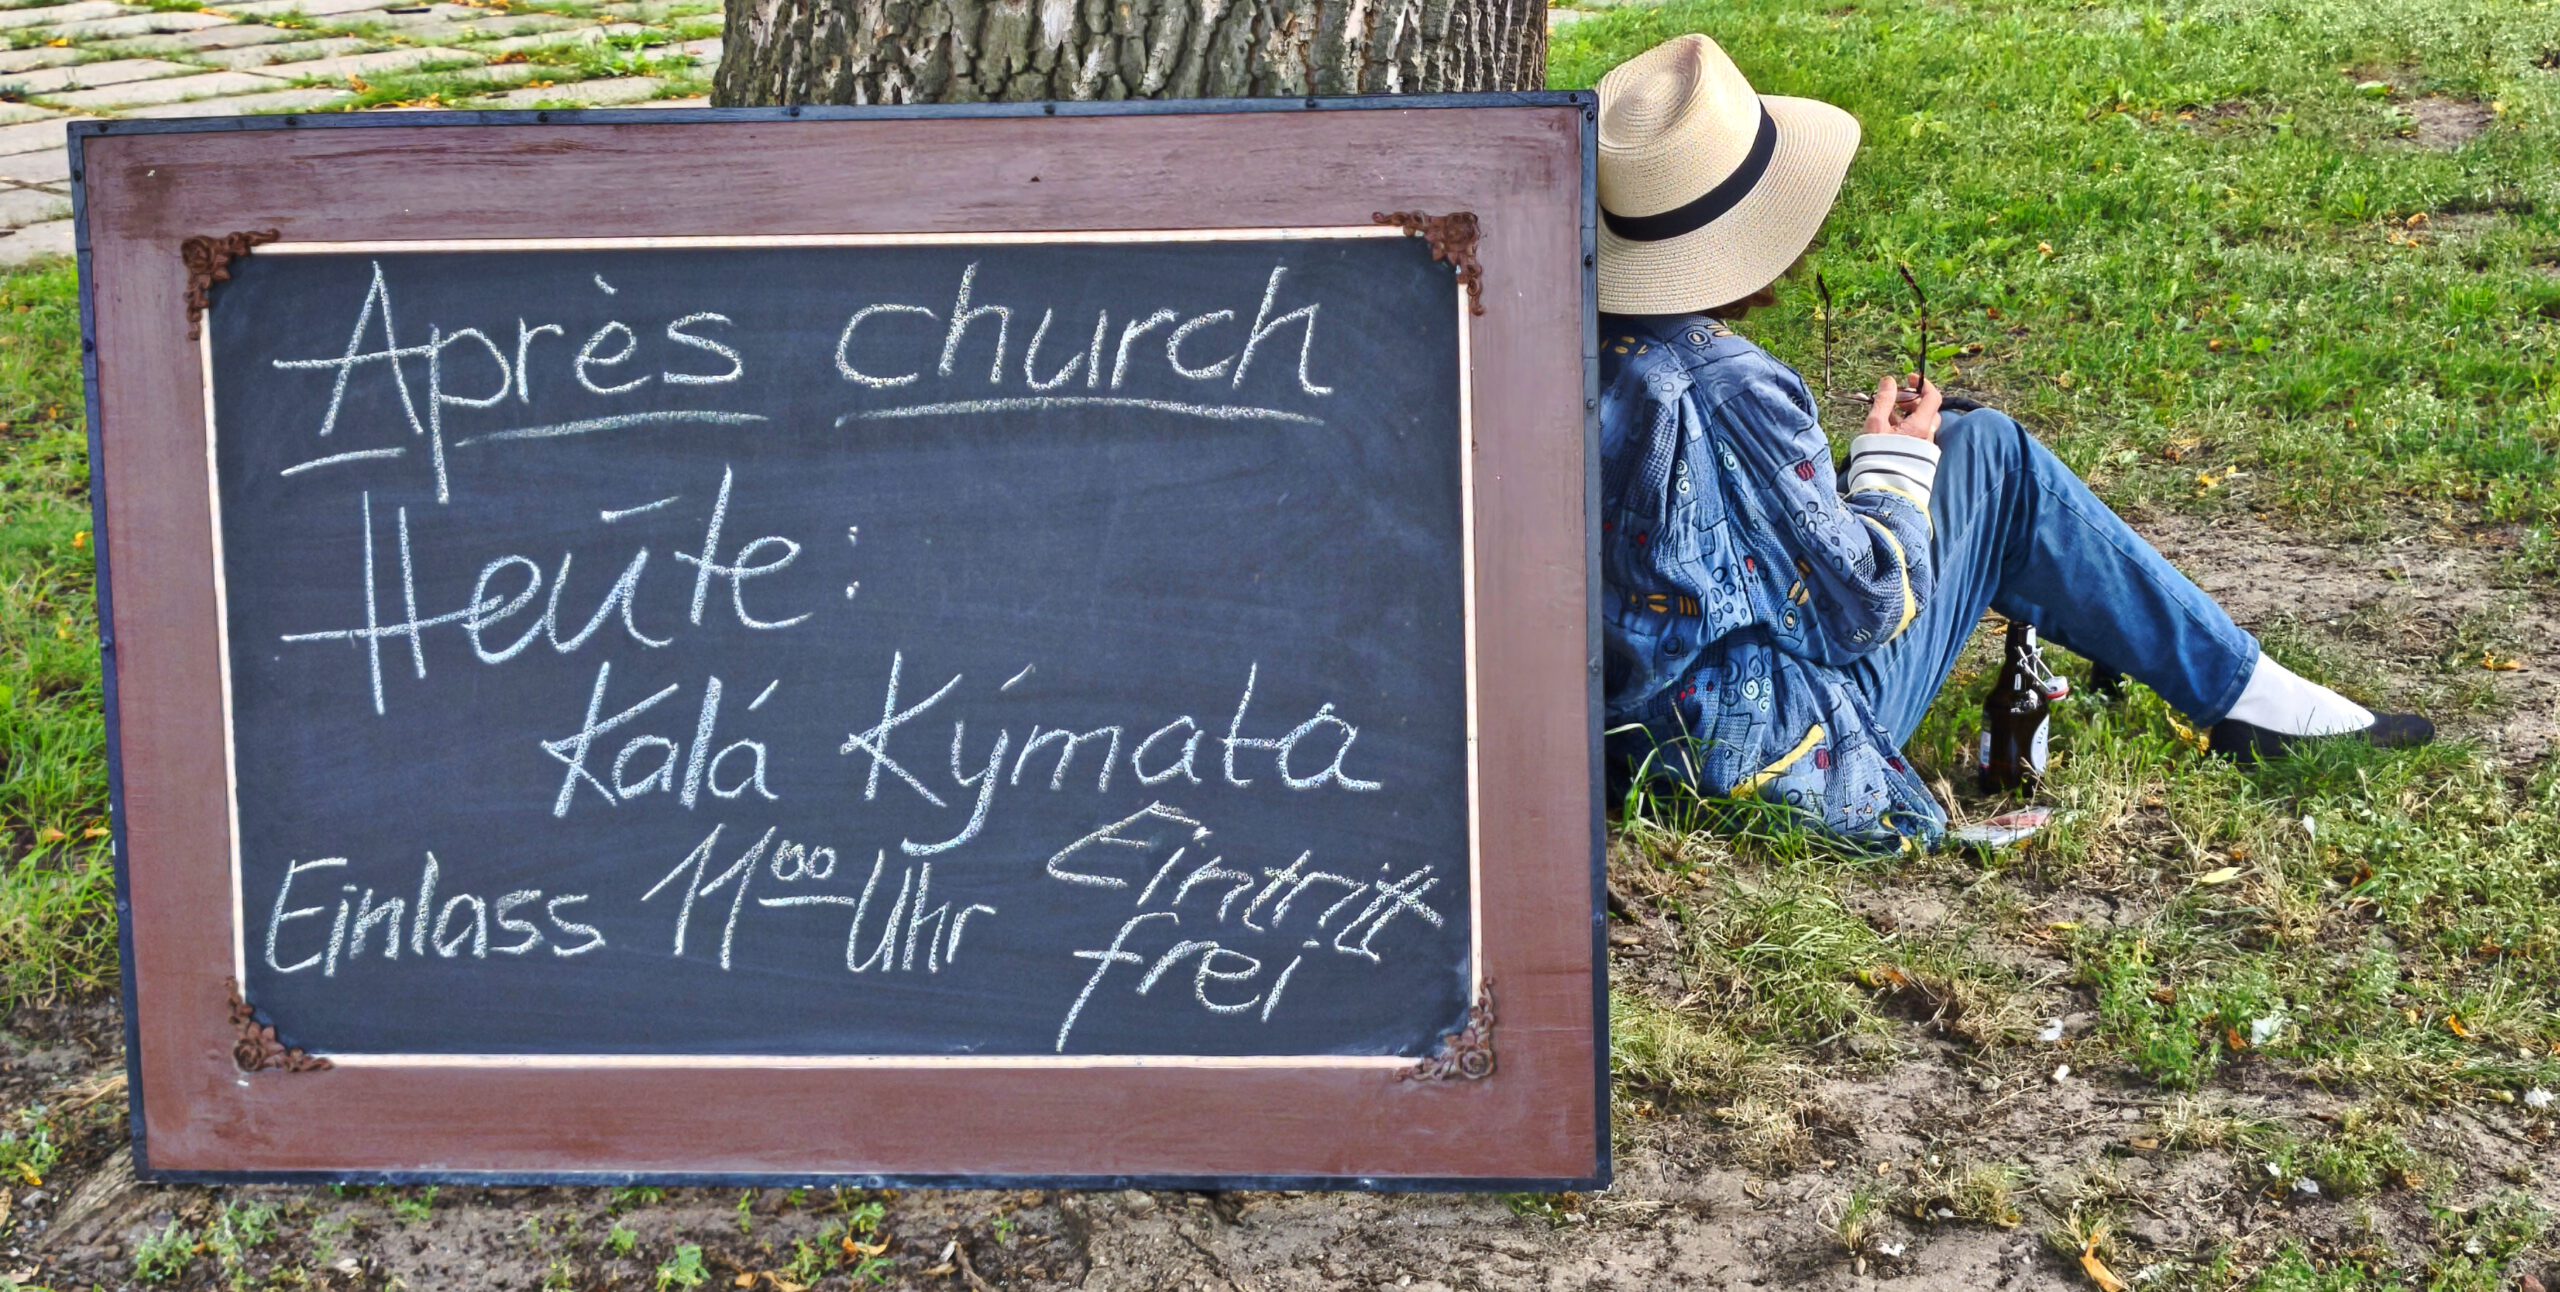 Après church
Heute:
Kalá Kýmata
Einlass 11⁰⁰ Uhr Eintritt
frei